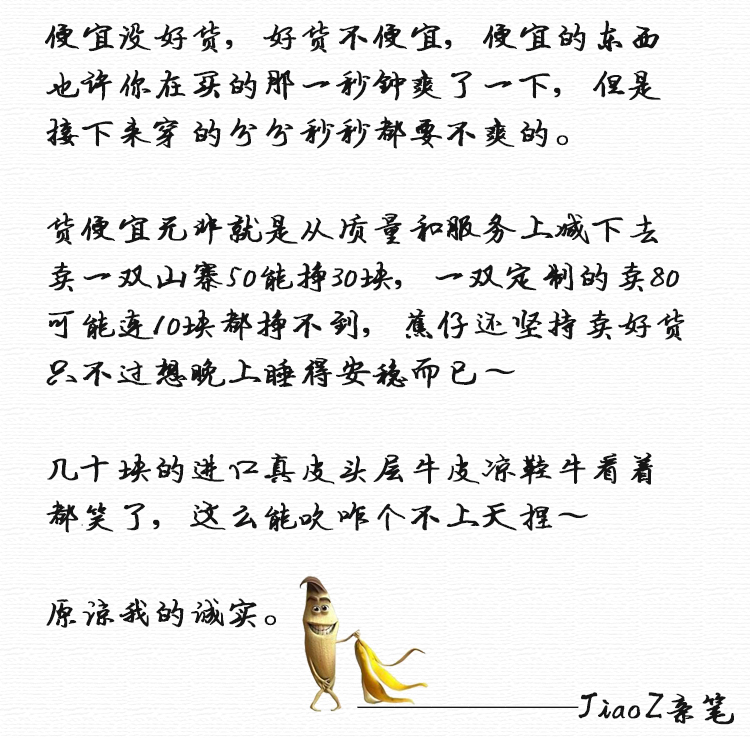 便宜没好货，好货不便宜，便宜的东西
也许你在买的那一秒钟爽了一下，但是
接下来穿的分分秒秒都要不爽的。
货便宜无非就是从质量和服务上减下去
卖一双山寨50能挣30块，一双定制的卖80
可能连10块都挣不到，蕉仔还坚持卖好货
只不过想晚上睡得安稳而已～
几十块的进口真皮头层牛皮凉鞋牛看着
都笑了，这么能吹咋个不上天捏～
原谅我的诚实。
JiaoZ亲笔